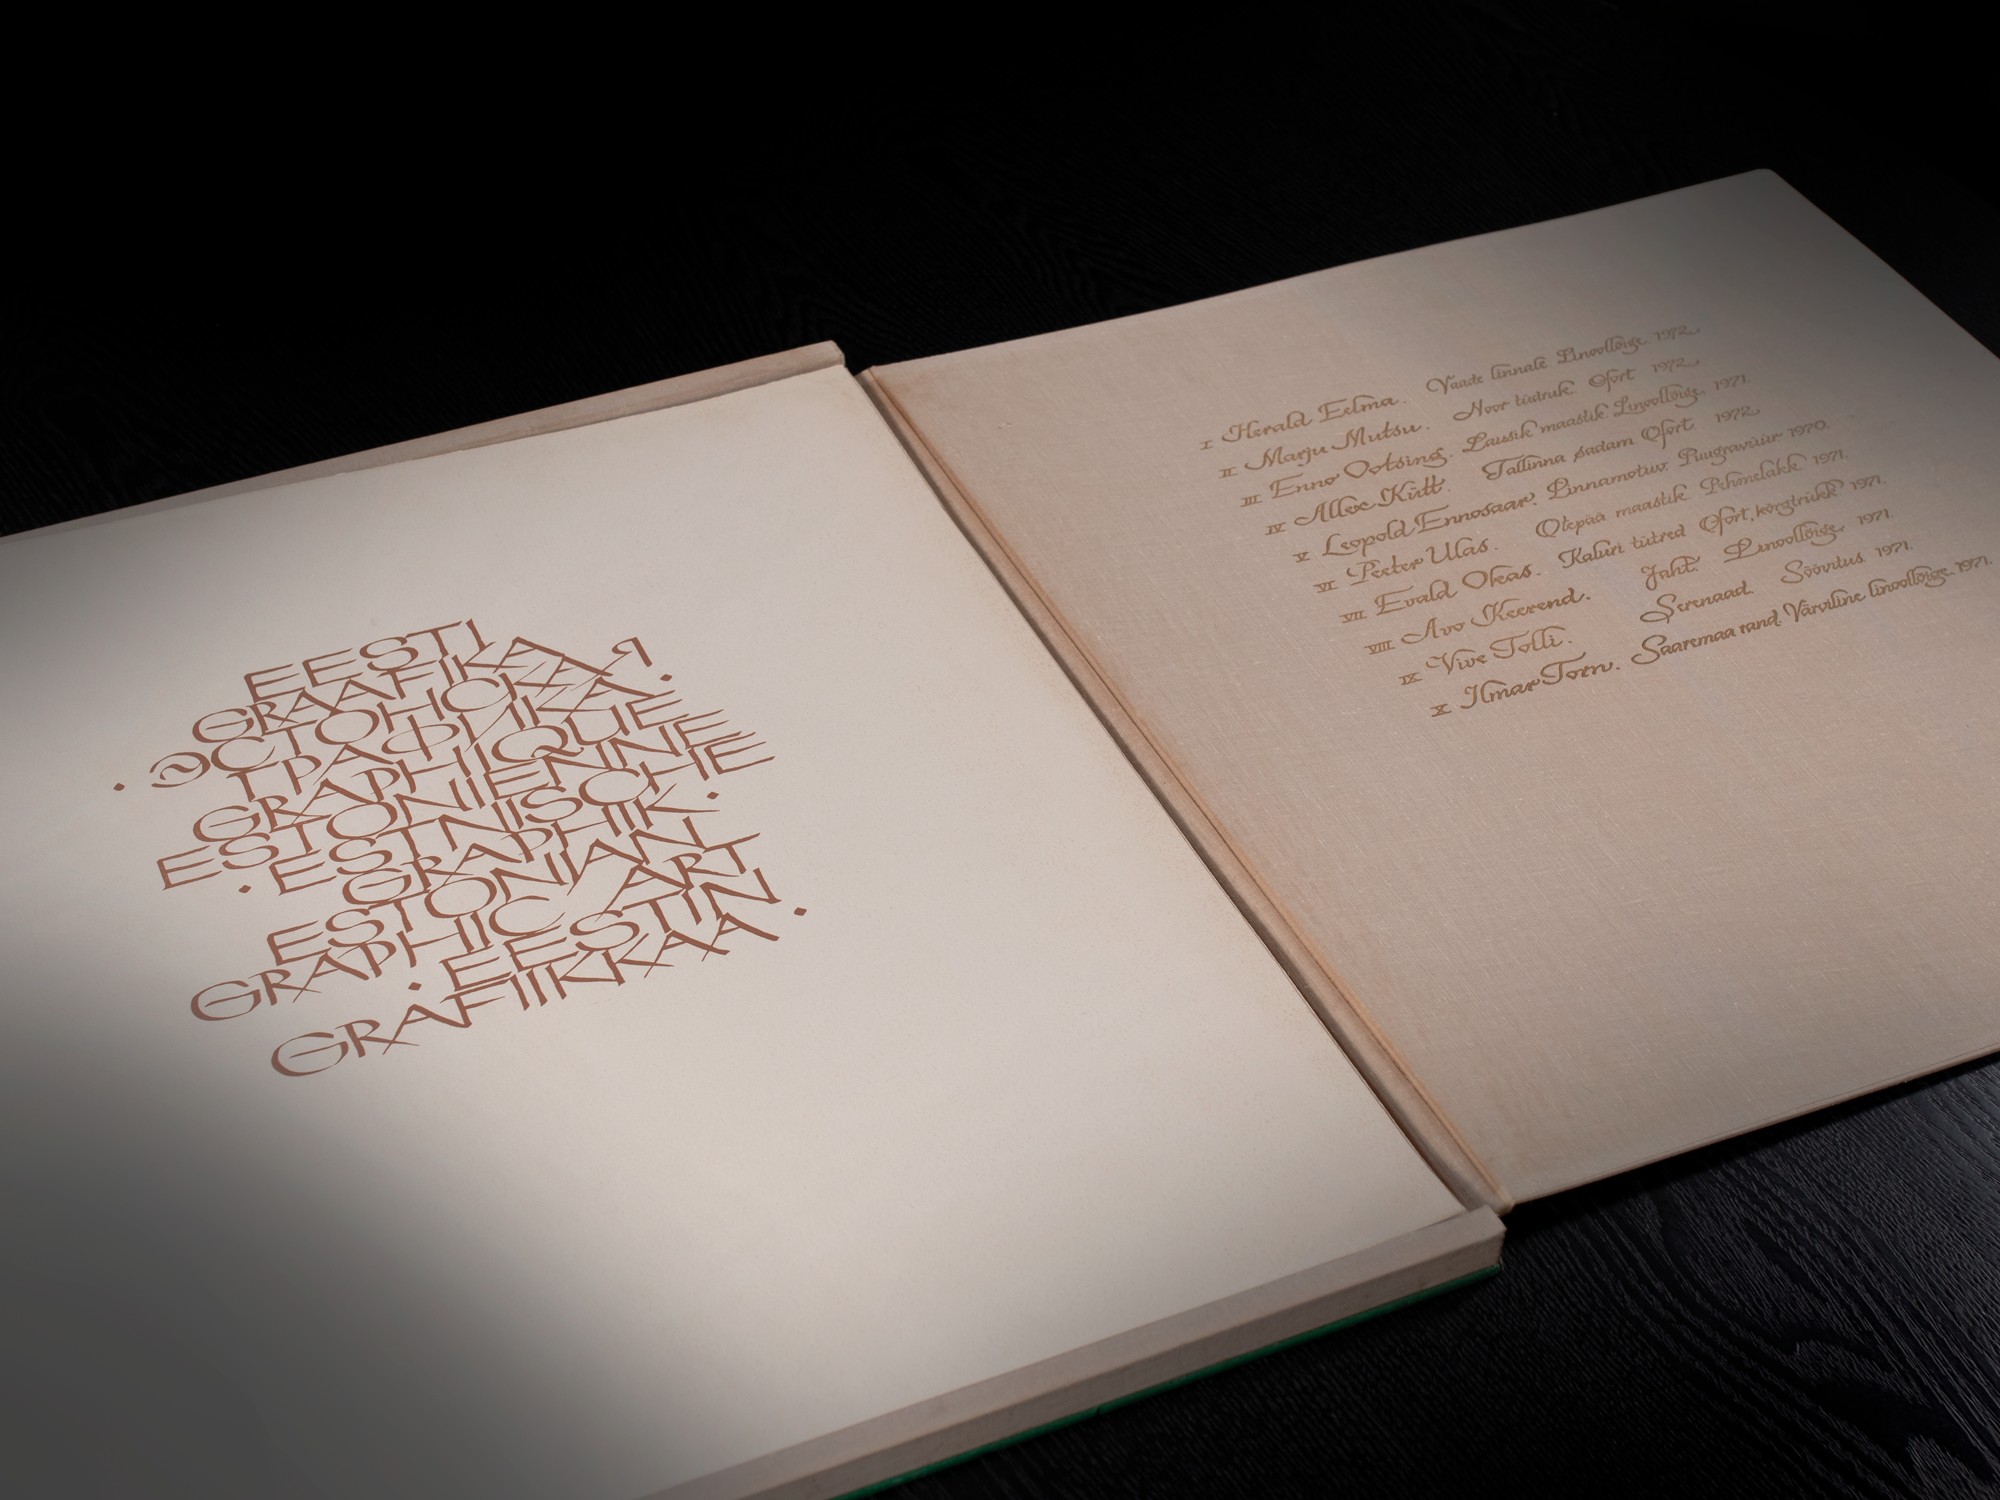 EESTI
GRAAFIKA
· ЭСТОНСКАЯ
ГРАФИКА ·
GRAPHIQUE
ESTONIENNE
· ESTNISCHE
GRAPHIK ·
ESTONIAN
GRAPHIC ART
· EESTIN
GRAFIIKKAA ·
I Herald Eelma. Vaade linnale. Linoollõige. 1972.
II Marju Mutsu. Noor tüdruk. Ofort 1972.
III Enno Ootsing. Lausik maastik. Linoollõige. 1971.
IV Allex Kütt. Tallinna sadam Ofort 1972.
V Leopold Ennosaar. Linnamotiiv. Puugravüür 1970.
VI Peeter Ulas. Otepää maastik. Pehmelakk 1971.
VII Evald Okas. Kaluri tütred Ofort, kõrgtrükk 1971.
VIII Avo Keerend. Jaht. Linoollõige. 1971.
IX Vive Tolli. Serenaad. Söövitus 1971.
X Ilmar Torn. Saaremaa rand. Värviline linoollõige. 1971.